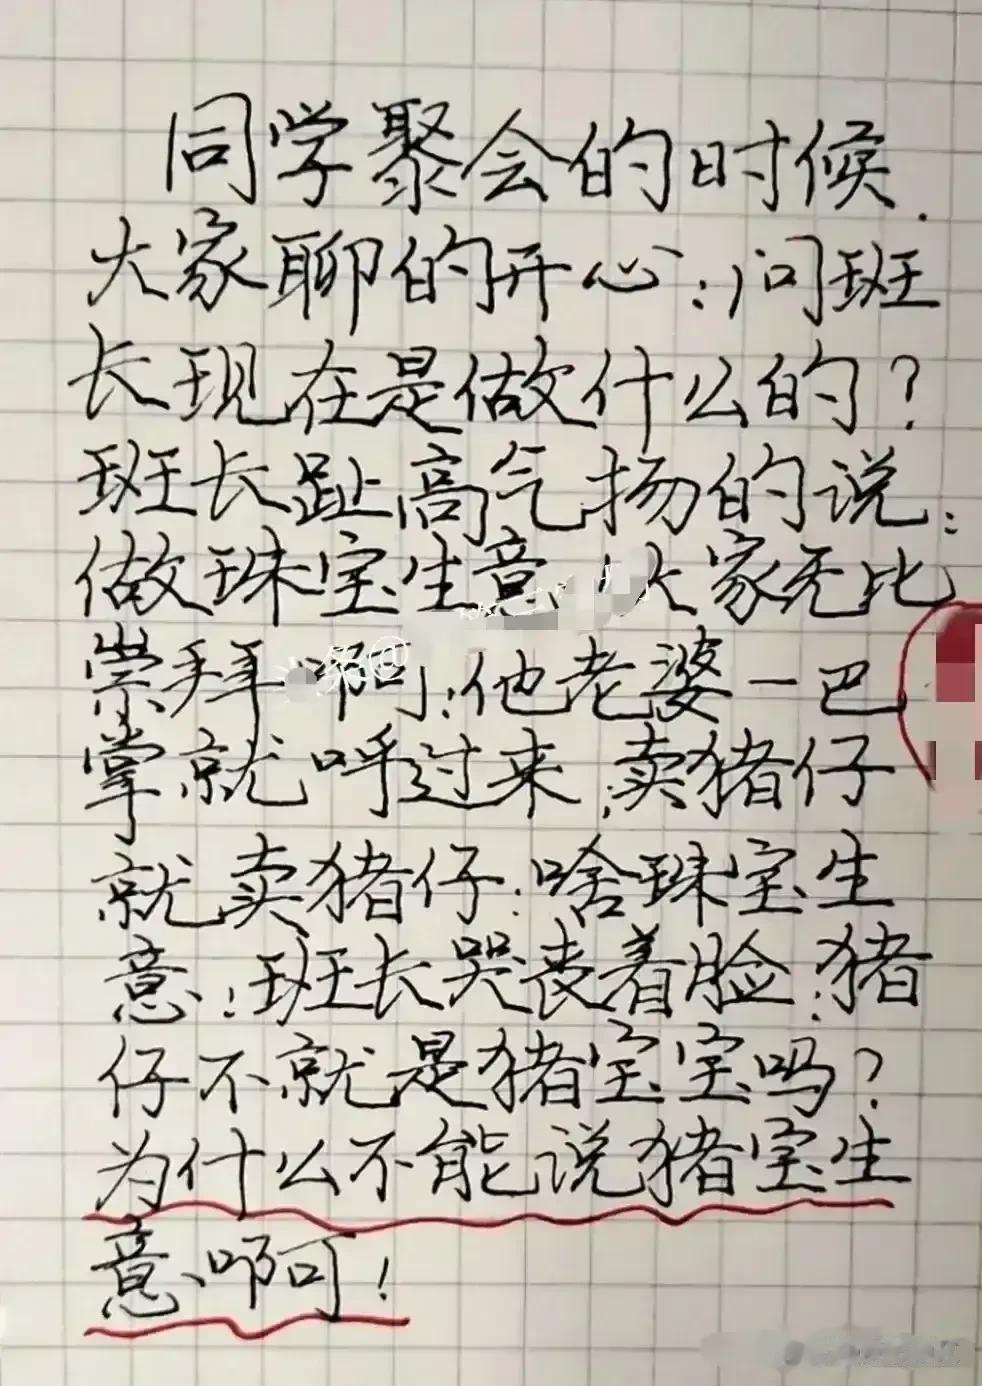 同学聚会的时候.
大家聊的开心:问班
长现在是做什么的?
班长趾高气扬的说:
做珠宝生意 大家无比
崇拜啊:他老婆一巴
掌就呼过来:卖猪仔
就卖猪仔:啥珠宝生
意:班长哭丧着脸:猪
仔不就是猪宝宝吗?
为什么不能说猪宝生
意啊!